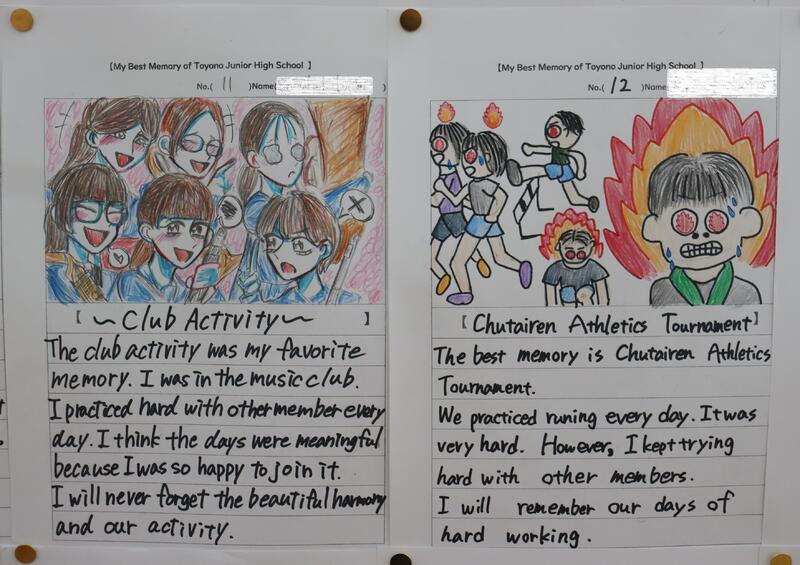 【My Best Memory of Toyono Junior High School 】
No.( 11 )Name( )
【 ~Club Activity~ 】
The club activity was my favorite
memory. I was in the music club.
I practiced hard with other member every
day. I think the days were meaningful
because I was so happy to join it.
I will never forget the beautiful harmony
and our activity.
【My Best Memory of Toyono Junior High School 】
No.( 12 )Name
【Chutairen Athletics Tournament】
The best memory is Chutairen Athletics
Tournament.
We practiced runing every day. It was
very hard. However, I kept trying
hard with other members.
I will remember our days of
hard working.